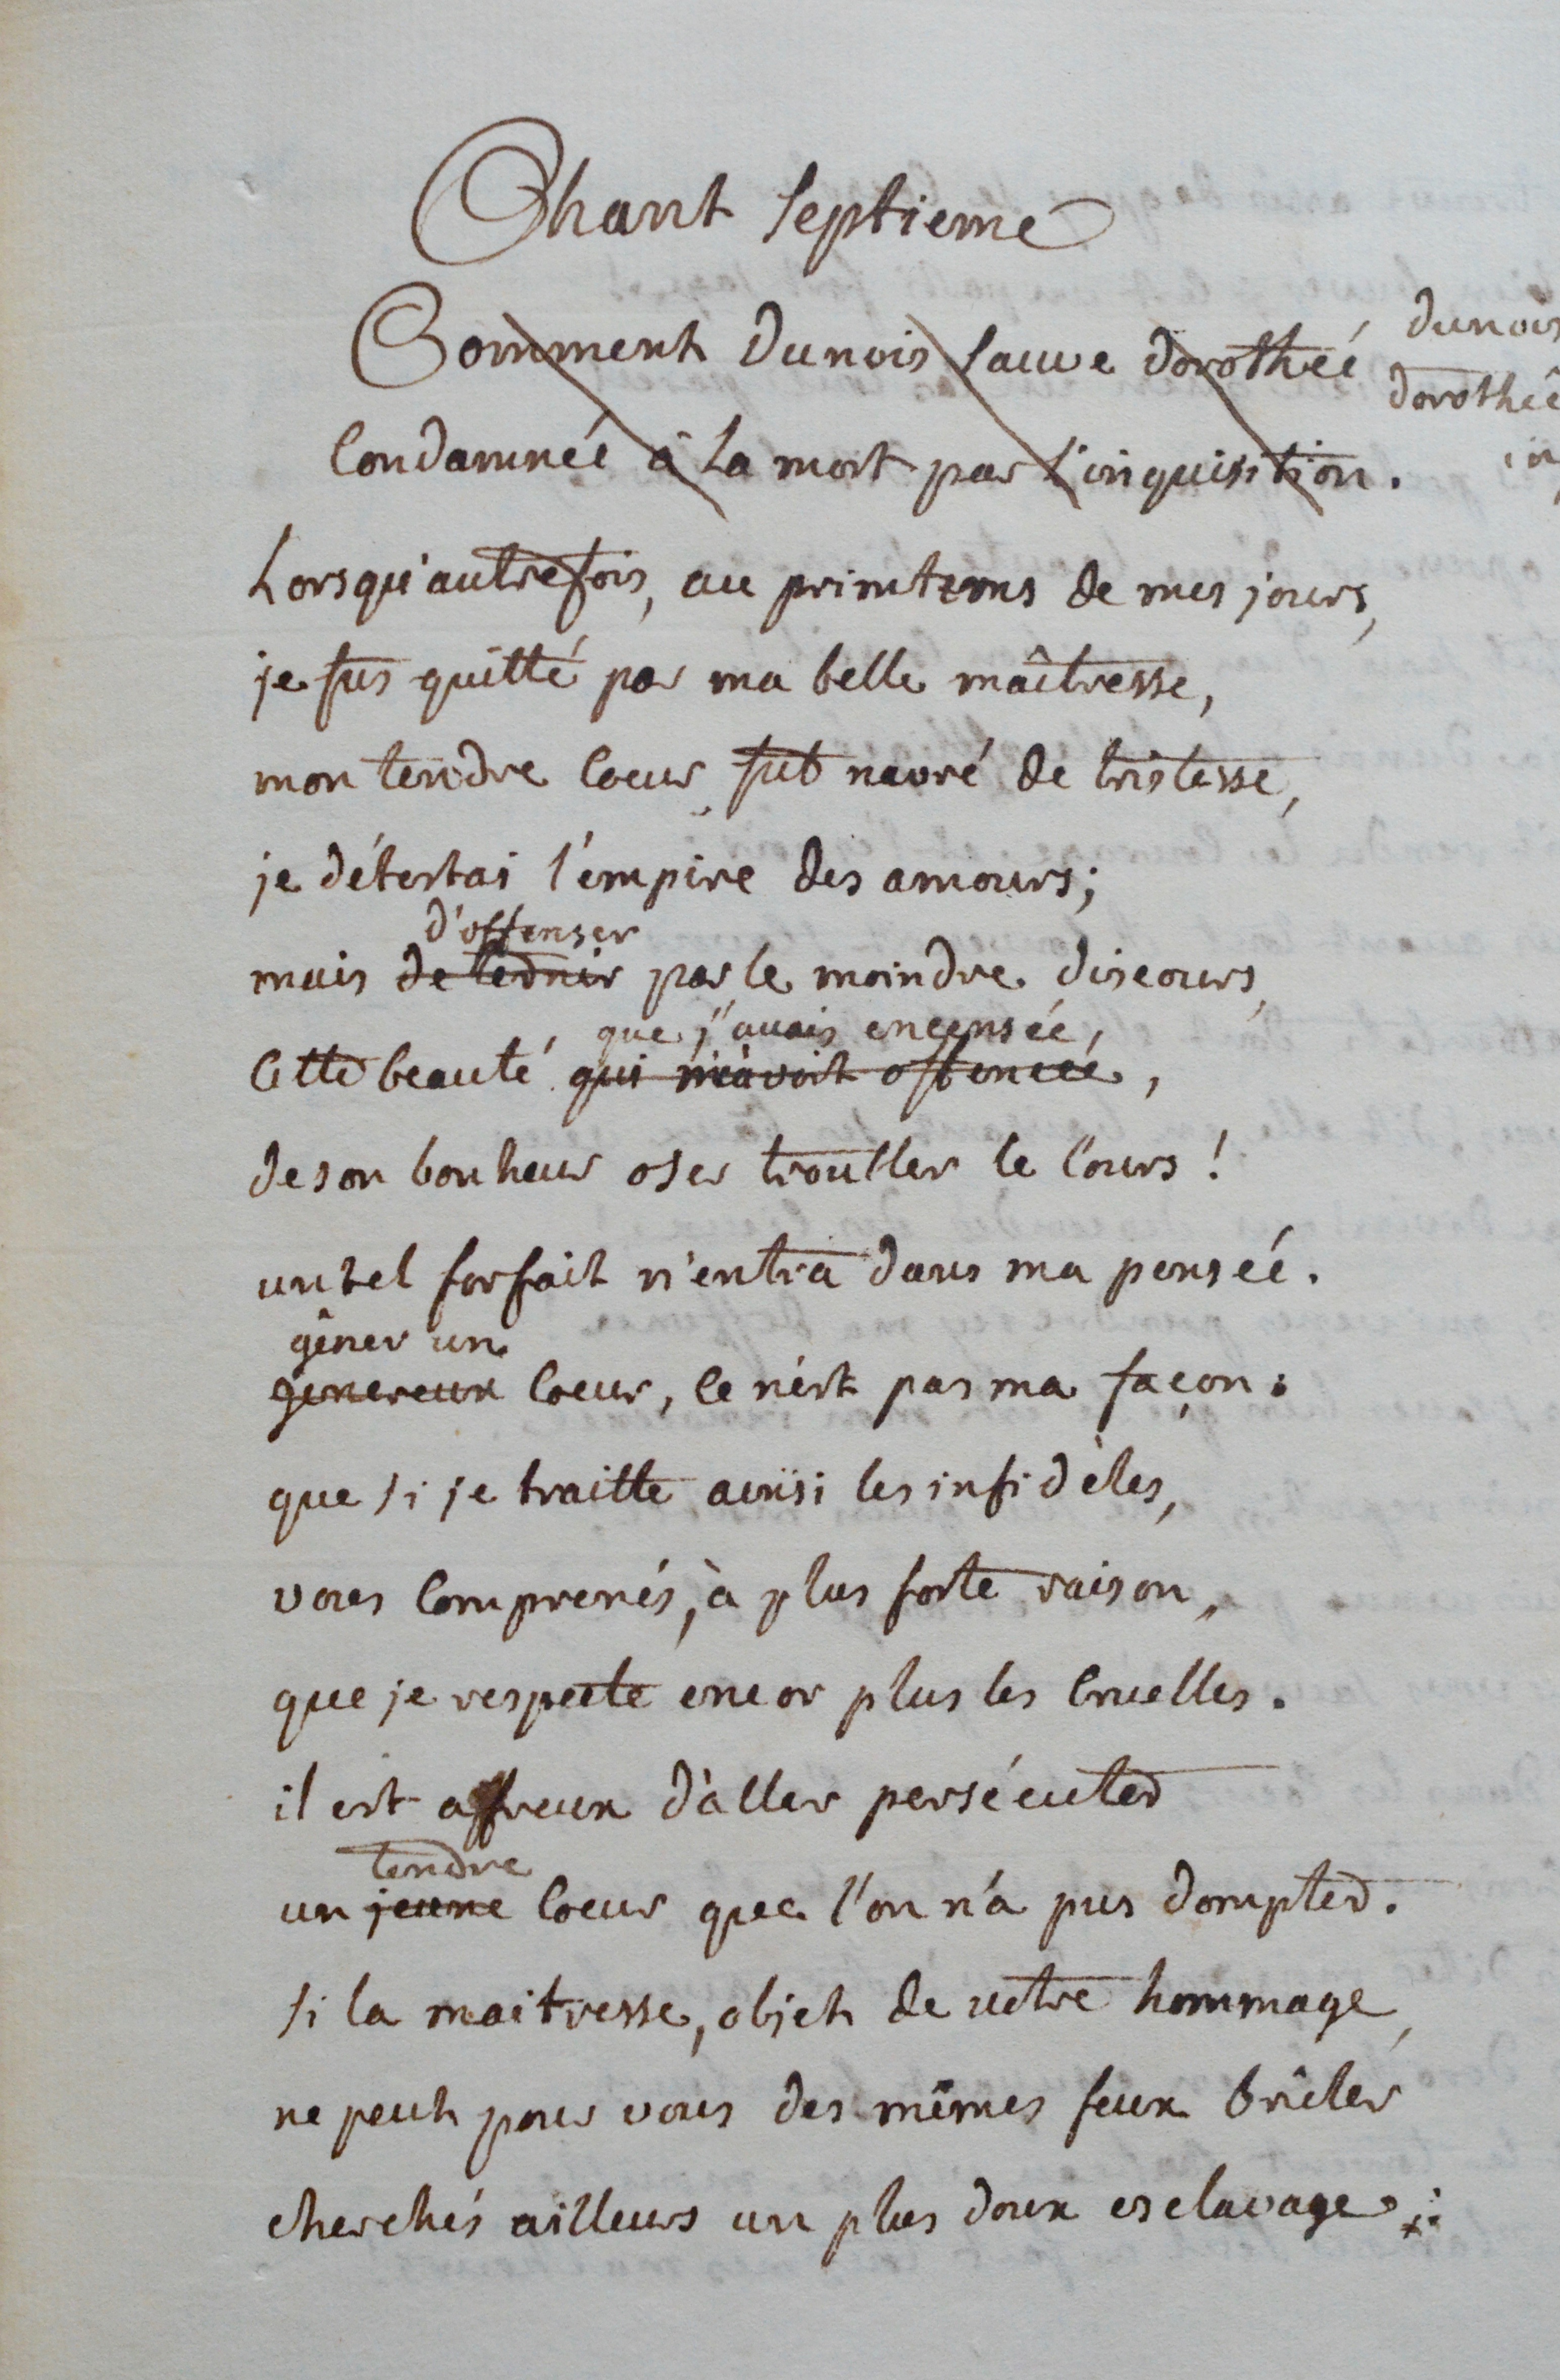 Chant Septieme
Comment Dunois sauve dorothéé
dunois
dorothéé
Condamnéé à la mort par l'inquisition.
in
Lorsqu'autrefois, au printems de mes jours,
je fus quitté par ma belle maîtresse,
mon tendre coeur fut navré de tristesse,
je détestai l'empire des amours;
d'offenser
mais de ternir par le moindre discours,
que j'avais encensée,
Cette beauté qui m'avoit offencéé,
de son bonheur oser troubler le Cours!
un tel forfait n'entra dans ma penséé.
gêner un
genereux Coeur, ce n'est pas ma façon:
que si je traitte ainsi les infidèles,
vous Comprenés, à plus forte raison,
que je respecte encor plus les Cruelles.
il est affreux d'aller persécuter
tendre
un jeune Coeur que l'on n'a pus dompter.
si la maitresse, objet de votre hommage,
ne peut pour vous des mêmes feux brûler
cherchés ailleurs un plus doux esclavage